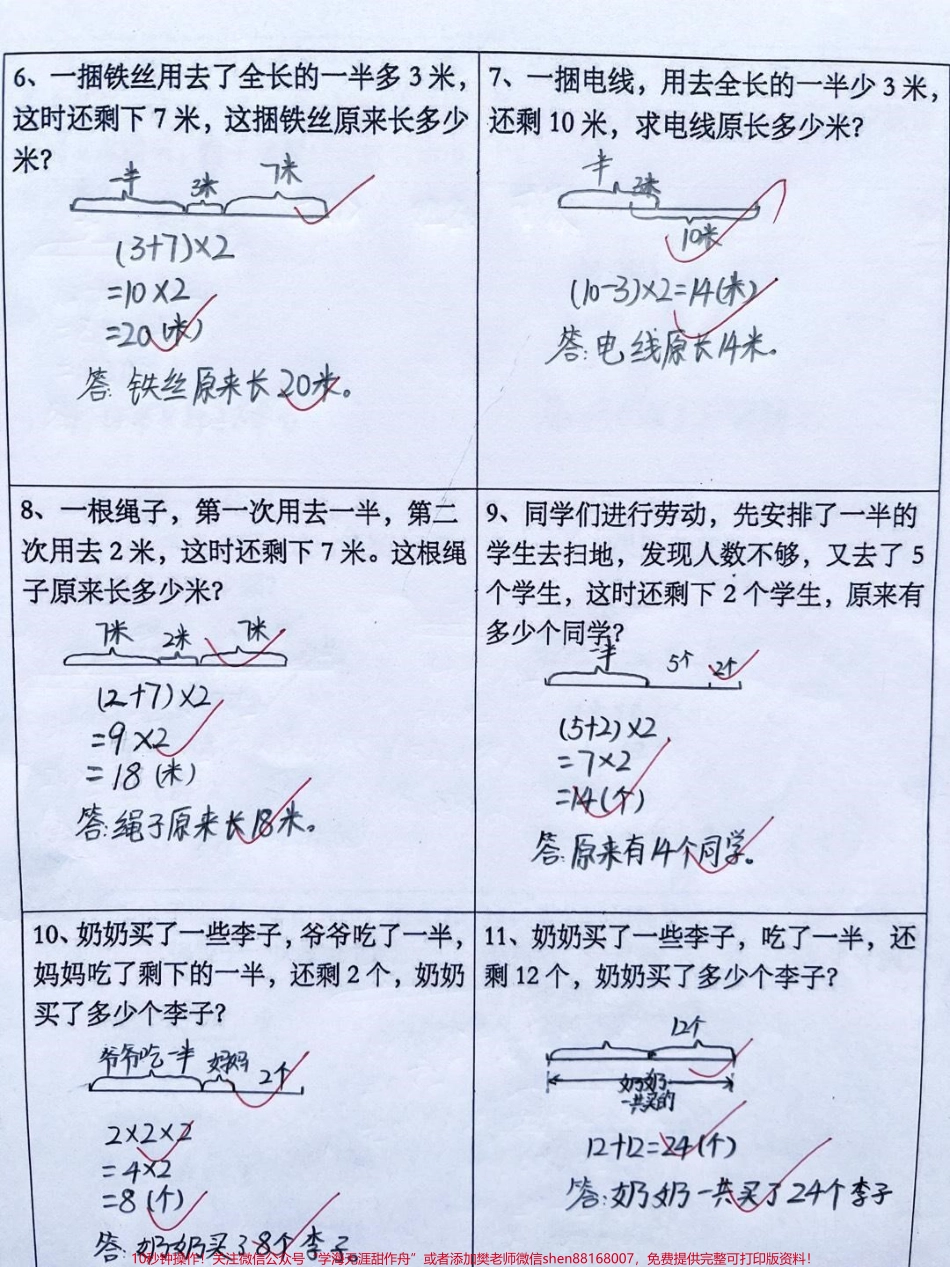 6、一捆铁丝用去了全长的一半多 3 米,
这时还剩下 7 米，这捆铁丝原来长多少
米?
一半 3米 7米
(3+7)×2
=10×2
=20(米)
答:铁丝原来长20米。
7、一捆电线，用去全长的一半少 3 米，
还剩 10 米，求电线原长多少米?
一半 3米
10米
(10-3)×2=14(米)
答:电线原长14米。
8、一根绳子，第一次用去一半，第二
次用去 2 米，这时还剩下 7 米。这根绳
子原来长多少米?
7米 2米 7米
(2+7)×2
=9×2
=18(米)
答:绳子原来长18米。
9、同学们进行劳动，先安排了一半的
学生去扫地，发现人数不够，又去了 5
个学生，这时还剩下 2 个学生，原来有
多少个同学?
一半 5个 2个
(5+2)×2
=7×2
=14(个)
答:原来有14个同学。
10、奶奶买了一些李子，爷爷吃了一半，
妈妈吃了剩下的一半，还剩 2 个，奶奶
买了多少个李子?
爷爷吃一半 妈妈 2个
2×2×2
=4×2
=8(个)
答:奶奶买了8个李子。
11、奶奶买了一些李子，吃了一半，还
剩 12 个，奶奶买了多少个李子?
12个
奶奶
一共买的
12+12=24(个)
答:奶奶一共买了24个李子
10秒钟操作！关注微信公众号“学海无涯甜作舟”或者添加樊老师微信shen88168007，免费提供完整可打印版资料！